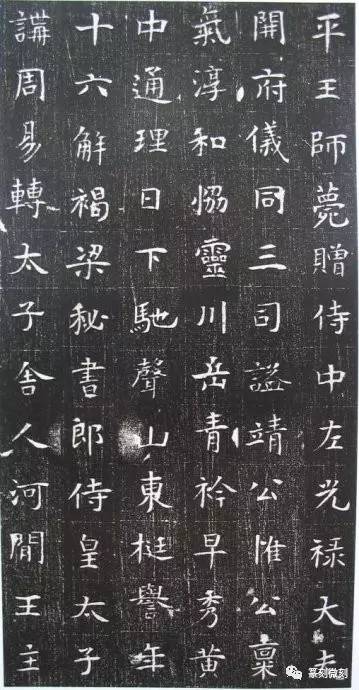 平王師薨贈侍中左光祿大夫
開府儀同三司謚靖公惟公稟
氣淳和恊靈川岳青衿早秀黃
中通理日下馳聲山東梃譽年
十六解褐梁秘書郎侍皇太子
講周易轉太子舍人河閒王主
篆刻微刻